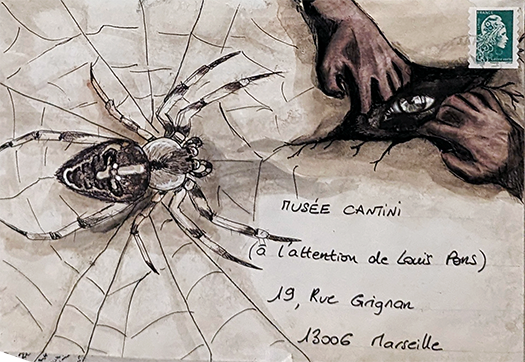 MUSÉE CANTINI
(à l'attention de Louis Pons)
19, Rue Grignan
13006 Marseille